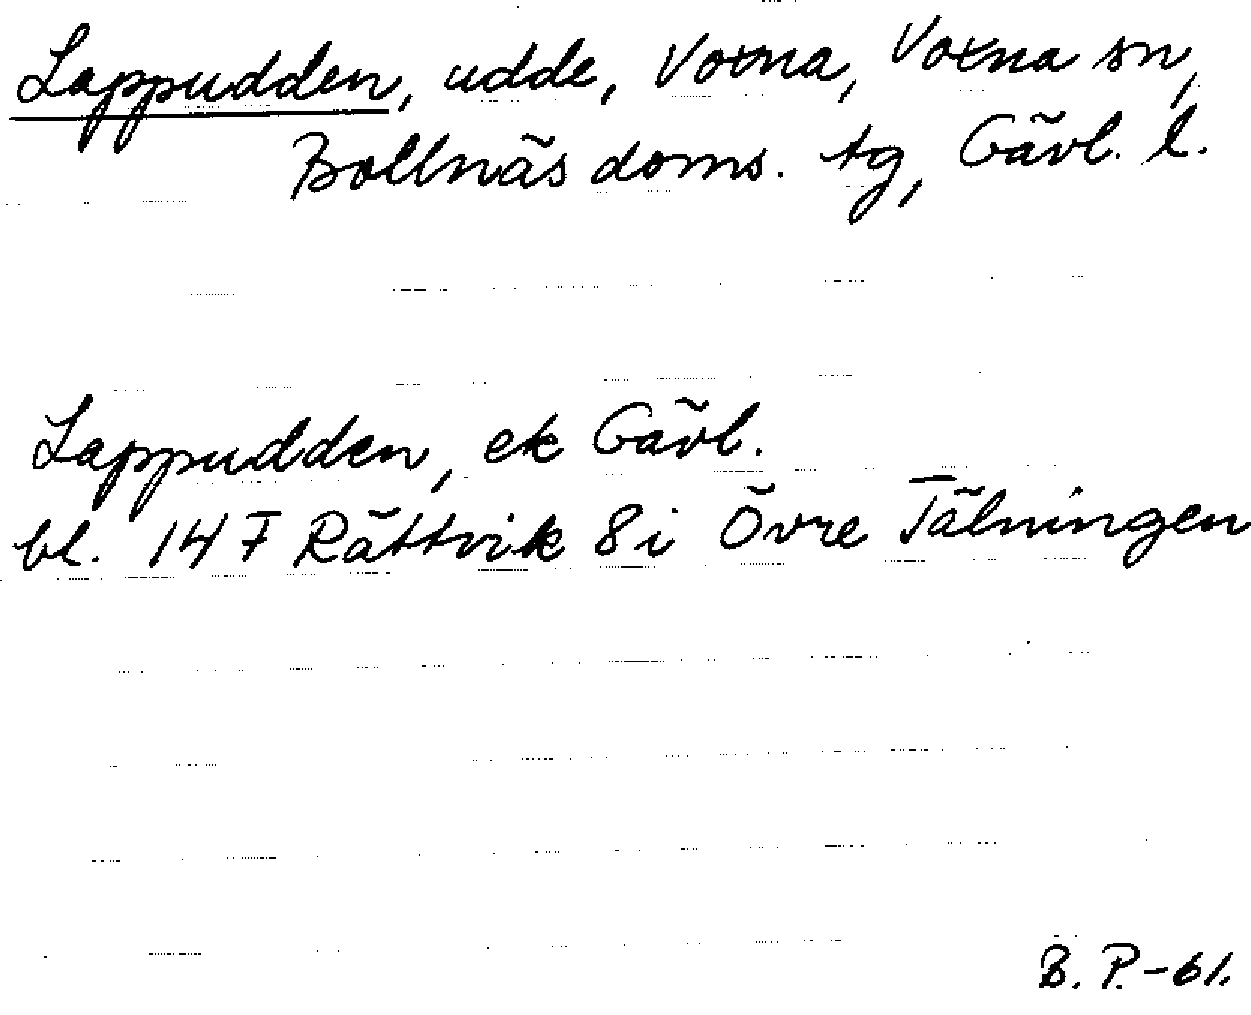 Lappudden, udde, Voxna, Voxna sn,
Bollnäs doms. tg, Gävl. l.
Lappudden, ek Gävl.
bl. 14 F Rättvik 8 i Övre Tälningen
B. P. -61.